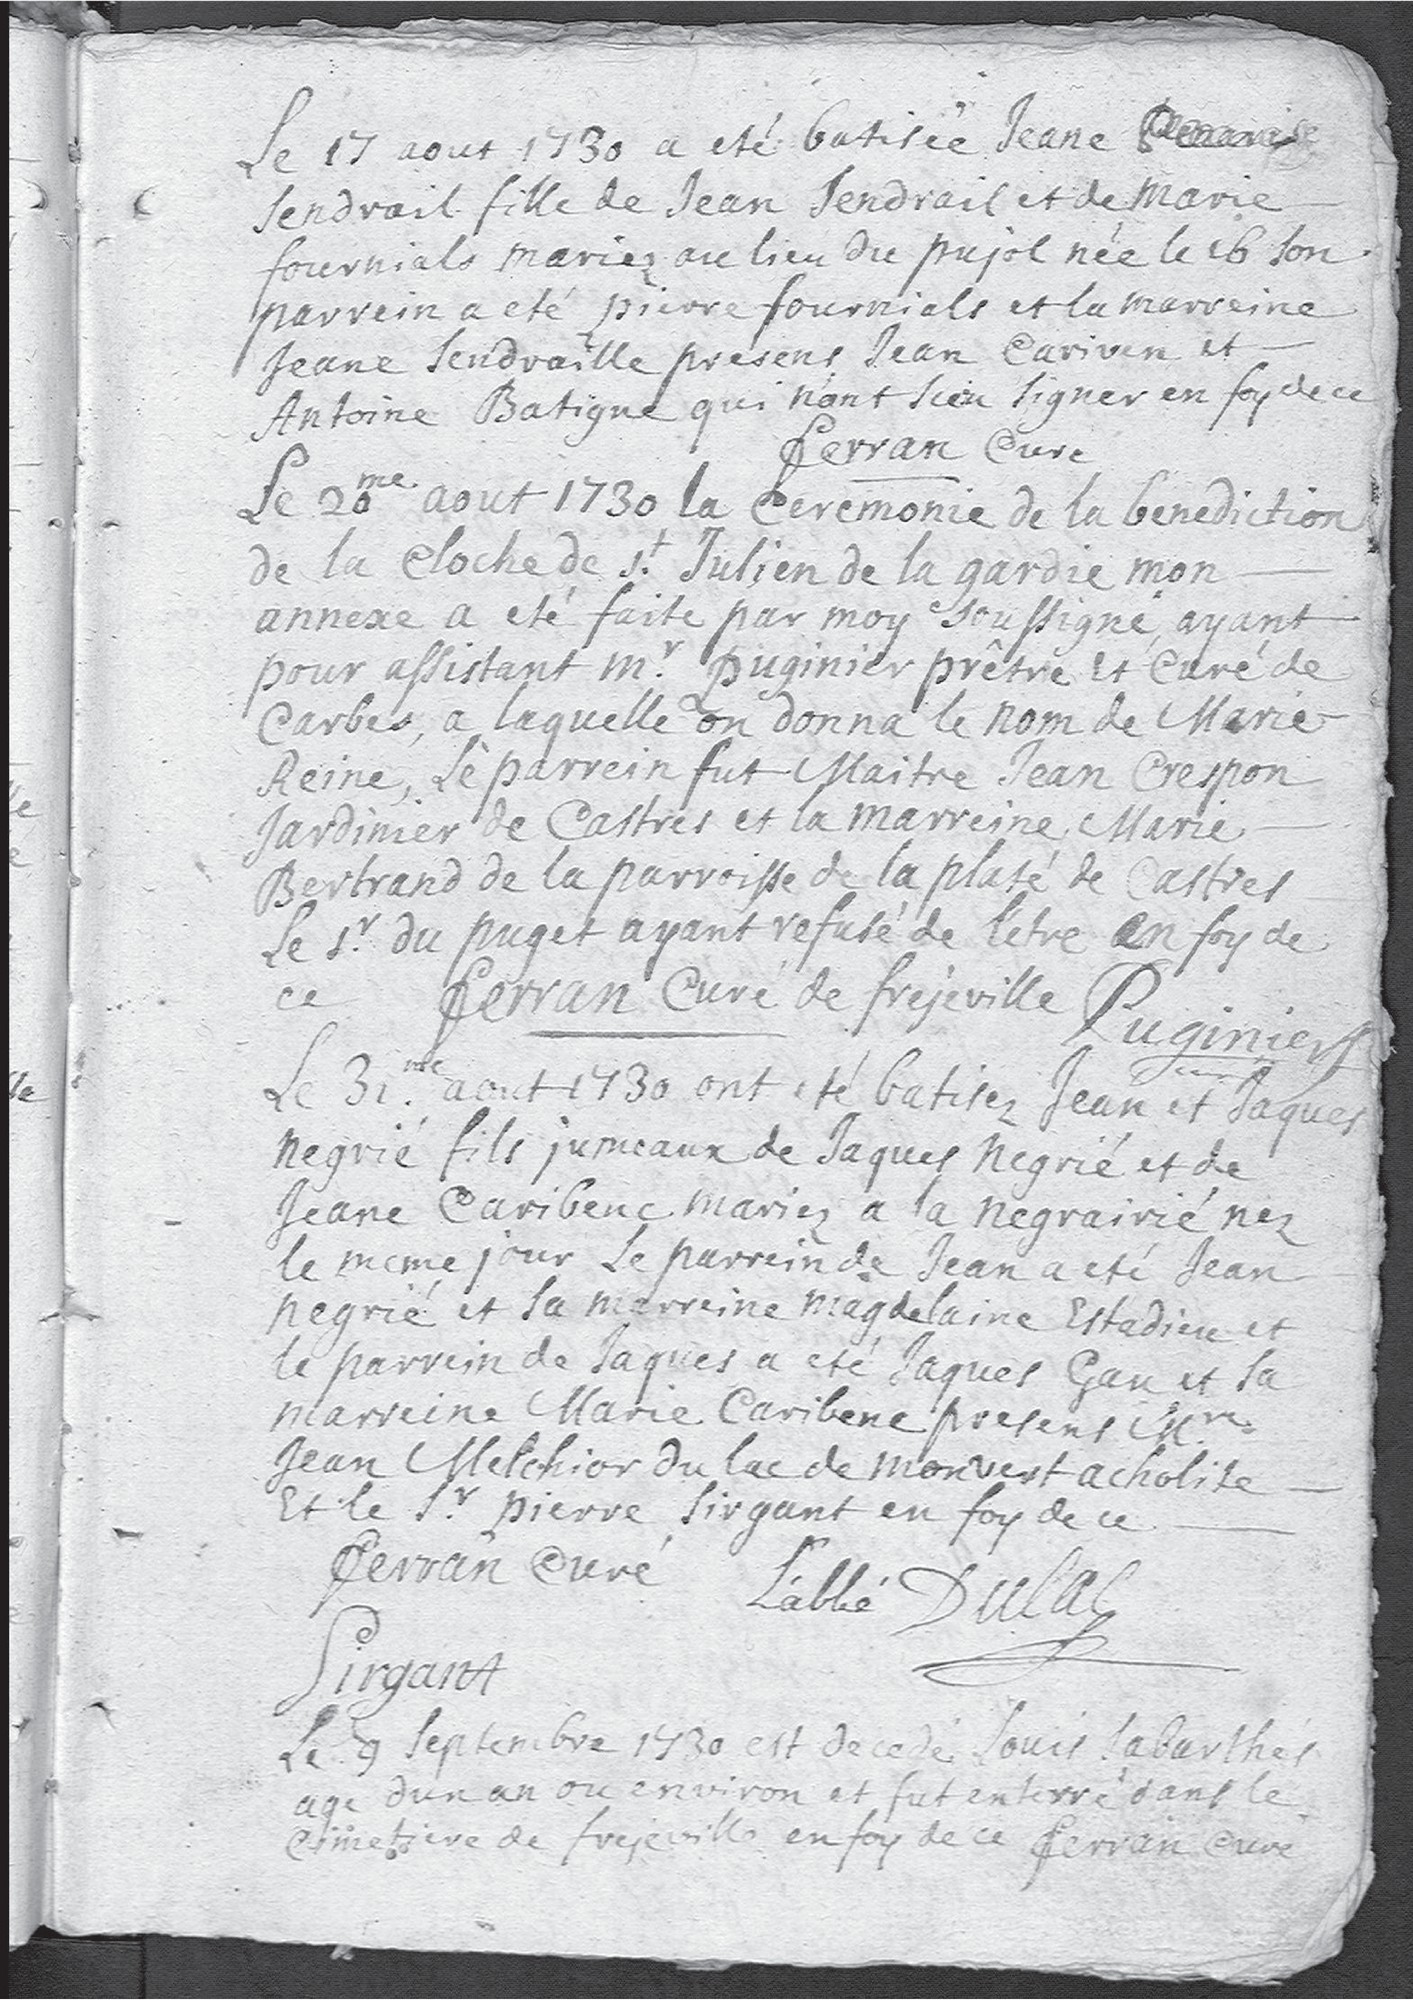 Le 17 aout 1730 a eté batisée Jeane
Sendrail fille de Jean Sendrail et de Marie
fournials mariez au lieu du pujol née le 16 son
parrein a eté pierre fournials et la marreine
Jeane Sendraille presens Jean Cariven et
Antoine Batigne qui n'ont sceu signer en foy de ce
ferran Curé
Le 20me aout 1730 la Ceremonie de la benediction
de la Cloche de St. Julien de la gardie mon
annexe a eté faite par moy soussigné, ayant
pour assistant mr. puginier prêtre et Curé de
Carbes, a laquelle on donna le nom de Marie
Reine, Le parrein fut Maitre Jean Crespon
Jardinier de Castres et la marreine Marie
Bertrand de la parroisse de la platé de Castres
Le Sr. du puget ayant refusé de l'etre en foy de
ce ferran Curé de frejeville Puginier
Le 31.me aout 1730 ont eté batisez Jean et Jaques
negrié fils jumeaux de Jaques Negrié et de
Jeane Caribenc mariez a la Negrairié nez
le meme jour Le parrein de Jean a eté Jean
negrié et sa marreine magdelaine Estadieu et
le parrein de Jaques a eté Jaques Gau et sa
marreine Marie Caribenc presens Mre.
Jean Melchior du lac de monvert acholite
Et le Sr. pierre Sirgant en foy de ce
ferran Curé L'abbé DULAC
Sirgant
Le 9 Septembre 1730 est decedé Louis Labarthés
age dun an ou environ et fut enterré dans le
cimetiere de frejeville en foy de ce ferran Curé